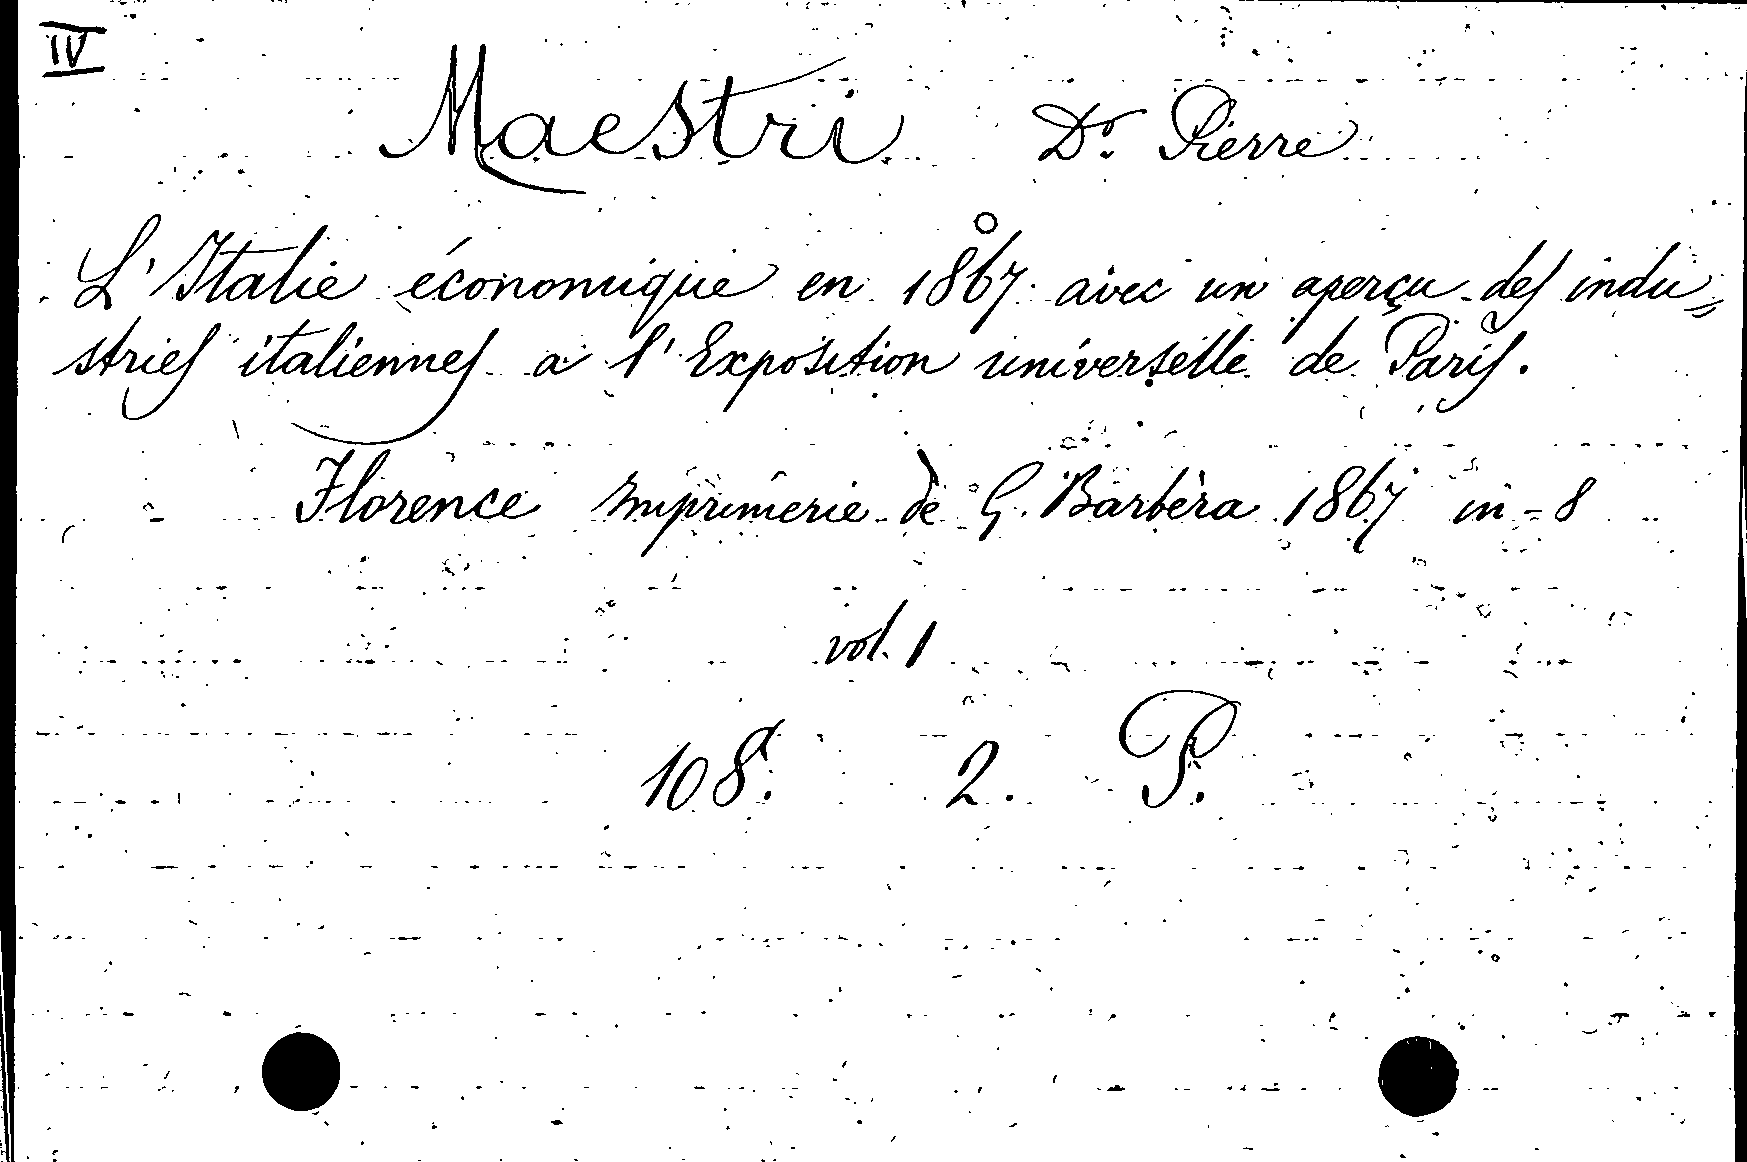 IV
Maestri Dr. Pierre
L'Italie économique en 1867 avec un aperçu des indu=
stries italiennes a l'Exposition universelle de Paris.
Florence Imprimerie de G. Barbèra 1867 in-8
vol. 1
108. 2. P.